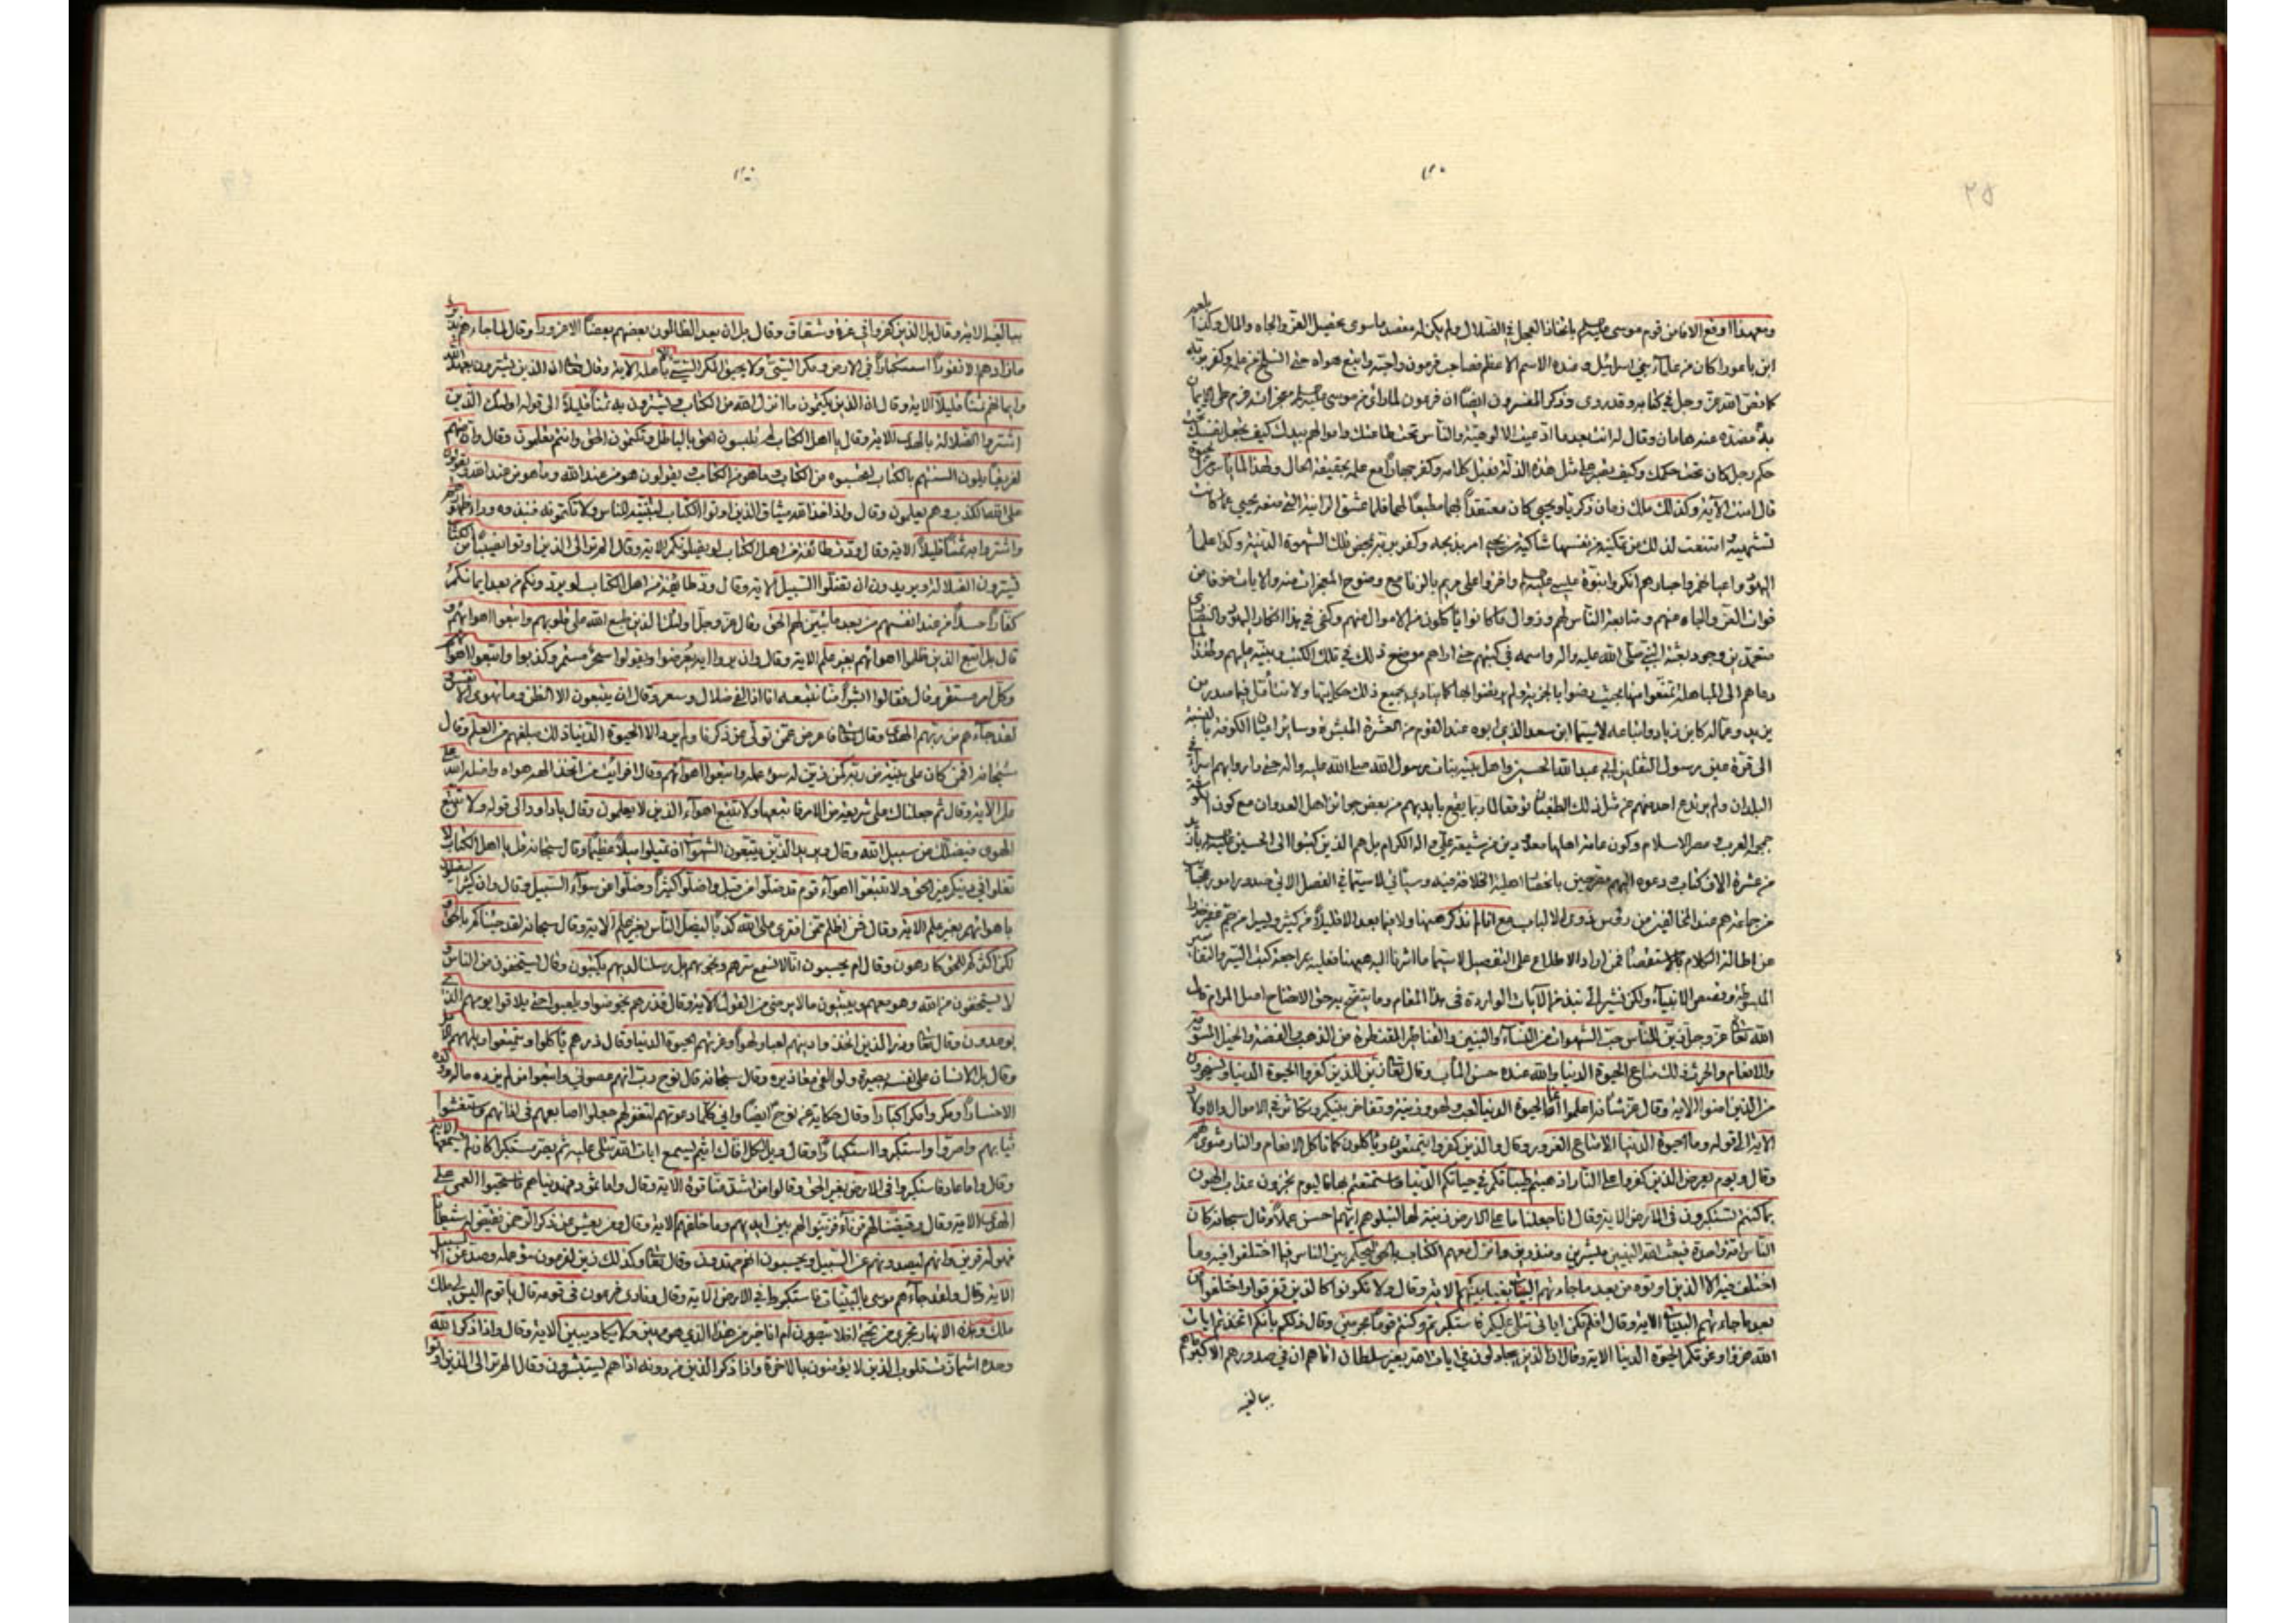 ٢٥
ومع هذا اوقع الامامن قوم موسى باتخاذ العجل في الضلال ولم يكن له مقصد ماسوى تحصيل العز والجاه والمال وكذا
ابن باعورا كان من علماء بني اسرائيل وعنده الاسم الاعظم فصاحب فرعون واجنه واتبع هواه حتى انسلخ من علمه وكفر
كما نص الله عز وجل في كتابه وقد روى وذكر المفسرون ايضا ان فرعون لما راى من موسى معجزاته عزم على الايمان
عنده هامان وقال له انت بعد ما ادعيت الالوهية والناس تحت طاعتك واموالهم بيدك كيف تجعل نفسك تحت
حكم رجل كان تحت حكمك وكيف يصبر على مثل هذه الذلة فقبل كلامه وكفر جهارا مع علمه بحقيقة الحال ولهذا لما
قال امنت الآية وكذلك ملك زمان زكريا ويحيى كان معتقدا بهما مطيعا لهما فلما عشق الزانية التي منعه يحيى عما كانت
تشتهيه امتنعت لذلك من تمكينه من نفسها شاكية من يحيى امر بذبحه وكفر بربه بمحض تلك الشهوة الدنية وكذا علما
اليهود واحبارهم انكروا نبوة عيسى وافتروا على مريم بالزنا مع وضوح المعجزات منه والايات خوفا من
فوات العز والجاه منهم ومتابعة الناس لهم وزوال ما كانوا ياكلون من الاموال منهم وكفى في هذا انكار اليهود والنصارى
بعثة النبي صلى الله عليه واله واسمه في كتبهم حتى اراهم موضع ذلك في تلك الكتب وبينه عليهم ولهذا
دعاهم الى المباهلة بحيث رضوا بالجزية ولم يرضوا بها كما ينادي بجميع ذلك حكايتها ولا تتأمل فيما صدر من
يزيد وعماله كابن زياد واتباعه لاسيما ابن سعد الذي ابوه عند القوم من العشرة المبشرة وساير اعيان الكوفة بالنسبة
الى قرة عين رسول الثقلين ابي عبد الله الحسين واهل بيته بنات رسول الله صلى الله عليه واله حتى داروا بهم
البلدان ولم يرتدع احد منهم عن مثل ذلك الطغيان توقعا لما ربما يقع بايديهم من بعض جوائز اهل العدوان مع كون الكوفة
مصر الاسلام وكون عامة اهلها معدودين من شيعة علي واله الكرام بل هم الذين كتبوا الى الحسين
من عشرة الاف كتاب ودعوه اليهم الخلافة فيه وسيأتي لاسيما في الفصل الاتي صدور امور
من جماعة هم عند المخالفين من رؤس ذوي الالباب مع انا لم نذكر هيهنا ولا فيما بعد الا قليلا من كثير ويسيرا من جم غفير
عن اطالة الكلام فمن اراد الاطلاع على التفصيل لاسيما ما اشرنا اليه هيهنا فعليه بمراجعة كتب السير والتفاسير
المبسوطة وقصص الانبياء ولكن نشير الى نبذ من الآيات الواردة في هذا المقام وما يتضح به حق الايضاح اصل المرام قال
الله عز وجل زين للناس حب الشهوات من النساء والبنين والقناطير المقنطرة من الذهب والفضة والخيل المسومة
والانعام والحرث ذلك متاع الحيوة الدنيا والله عنده حسن المآب وقال تعالى زين للذين كفروا الحيوة الدنيا ويسخرون
من الذين امنوا الاية وقال عز شانه اعلموا انما الحيوة الدنيا لعب ولهو وزينة وتفاخر بينكم وتكاثر في الاموال والاولاد
الآية الى قوله وما الحيوة الدنيا الا متاع الغرور وقال والذين كفروا يتمتعون وياكلون كما تاكل الانعام والنار مثوى لهم
وقال ويوم يعرض الذين كفروا على النار اذهبتم طيباتكم في حياتكم الدنيا واستمتعتم بها فاليوم تجزون عذاب الهون
بما كنتم تستكبرون في الارض الاية وقال انا جعلنا ما على الارض زينة لها لنبلوهم ايهم احسن عملا وقال سبحانه كان
الناس امة واحدة فبعث الله النبيين مبشرين ومنذرين وانزل معهم الكتاب بالحق ليحكم بين الناس فيما اختلفوا فيه وما
اختلف فيه الا الذين اوتوه من بعد ما جاءتهم البينات بغيا بينهم الاية وقال ولا تكونوا كالذين تفرقوا واختلفوا من
بعد ما جاءتهم البينات الاية وقال افلم تكن اياتي تتلى عليكم فاستكبرتم وكنتم قوما مجرمين وقال ذلكم بانكم اتخذتم ايات
الله هزوا وغرتكم الحيوة الدنيا الاية وقال ان الذين يجادلون في ايات الله بغير سلطان اتاهم ان في صدورهم الا كبر ما هم
ببالغيه
ببالغيه الاية وقال بل الذين كفروا في عزة وشقاق وقال بل ان يعد الظالمون بعضهم بعضا الا غرورا وقال فلما جاءهم نذير
ما زادهم الا نفورا استكبارا في الارض ومكر السيئ ولا يحيق المكر السيئ الا باهله الاية وقال ان الذين يشترون بعهد الله
وايمانهم ثمنا قليلا الاية وقال ان الذين يكتمون ما انزل الله من الكتاب ويشترون به ثمنا قليلا الى قوله اولئك الذين
اشتروا الضلالة بالهدى الاية وقال يا اهل الكتاب لم تلبسون الحق بالباطل وتكتمون الحق وانتم تعلمون وقال وان منهم
لفريقا يلون السنتهم بالكتاب لتحسبوه من الكتاب وما هو من الكتاب ويقولون هو من عند الله وما هو من عند الله ويقولون
على الله الكذب وهم يعلمون وقال واذ اخذ الله ميثاق الذين اوتوا الكتاب لتبيننه للناس ولا تكتمونه فنبذوه وراء ظهورهم
واشتروا به ثمنا قليلا الاية وقال ودت طائفة من اهل الكتاب لو يضلونكم الاية وقال الم تر الى الذين اوتوا نصيبا من الكتاب
يشترون الضلالة ويريدون ان تضلوا السبيل الاية وقال ود طائفة من اهل الكتاب لو يردونكم من بعد ايمانكم
كفارا حسدا من عند انفسهم من بعد ما تبين لهم الحق وقال عز وجل اولئك الذين طبع الله على قلوبهم واتبعوا اهوائهم و
قال بل اتبع الذين ظلموا اهوائهم بغير علم الاية وقال وان يروا اية يعرضوا ويقولوا سحر مستمر وكذبوا واتبعوا اهوائهم
وكل امر مستقر وقال فقالوا ابشرا منا نتبعه انا اذا لفي ضلال وسعر وقال ان يتبعون الا الظن وما تهوى الانفس و
لقد جاءهم من ربهم الهدى وقال فاعرض عمن تولى عن ذكرنا ولم يرد الا الحيوة الدنيا ذلك مبلغهم من العلم وقال
سبحانه افمن كان على بينة من ربه كمن زين له سوء عمله واتبعوا اهوائهم وقال افرايت من اتخذ الهه هواه واضله الله على
علم الاية وقال ثم جعلناك على شريعة من الامر فاتبعها ولا تتبع اهواء الذين لا يعلمون وقال يا داود الى قوله ولا تتبع
الهوى فيضلك عن سبيل الله وقال ويريد الذين يتبعون الشهوات ان تميلوا ميلا عظيما وقال سبحانه قل يا اهل الكتاب لا
تغلوا في دينكم غير الحق ولا تتبعوا اهواء قوم قد ضلوا من قبل واضلوا كثيرا وضلوا عن سواء السبيل وقال وان كثيرا ليضلون
باهوائهم بغير علم الاية وقال فمن اظلم ممن افترى على الله كذبا ليضل الناس بغير علم الاية وقال سبحانه لقد جئناكم بالحق و
لكن اكثركم للحق كارهون وقال ام يحسبون انا لا نسمع سرهم ونجويهم بلى ورسلنا لديهم يكتبون وقال يستخفون من الناس و
لا يستخفون من الله وهو معهم اذ يبيتون ما لا يرضى من القول الاية وقال فذرهم يخوضوا ويلعبوا حتى يلاقوا يومهم الذي
يوعدون وقال تعالى وذر الذين اتخذوا دينهم لعبا ولهوا وغرتهم الحيوة الدنيا وقال ذرهم ياكلوا ويتمتعوا ويلههم الامل
وقال بل الانسان على نفسه بصيرة ولو القى معاذيره وقال سبحانه قال نوح رب انهم عصوني واتبعوا من لم يزده ماله وولده
الا خسارا ومكروا مكرا كبارا وقال حكاية عن نوح ايضا واني كلما دعوتهم لتغفر لهم جعلوا اصابعهم في اذانهم واستغشوا
ثيابهم واصروا واستكبروا استكبارا وقال ويل لكل افاك اثيم يسمع ايات الله تتلى عليه ثم يصر مستكبرا كان لم يسمعها الاية
وقال واما عاد فاستكبروا في الارض بغير الحق وقالوا من اشد منا قوة الاية وقال واما ثمود فهديناهم فاستحبوا العمى على
الهدى الاية وقال وقيضنا لهم قرناء فزينوا لهم ما بين ايديهم وما خلفهم الاية وقال ومن يعش عن ذكر الرحمن نقيض له شيطانا
فهو له قرين وانهم ليصدونهم عن السبيل ويحسبون انهم مهتدون وقال وكذلك زين لفرعون سوء عمله وصد عن السبيل
الاية وقال ولقد جاءهم موسى بالبينات فاستكبروا في الارض الاية وقال ونادى فرعون في قومه قال يا قوم اليس لي ملك
وهذه الانهار تجري من تحتي افلا تبصرون ام انا خير من هذا الذي هو مهين ولا يكاد يبين الاية وقال واذا ذكر الله
وحده اشمازت قلوب الذين لا يؤمنون بالاخرة واذا ذكر الذين من دونه اذا هم يستبشرون وقال الم تر الى الذين اوتوا